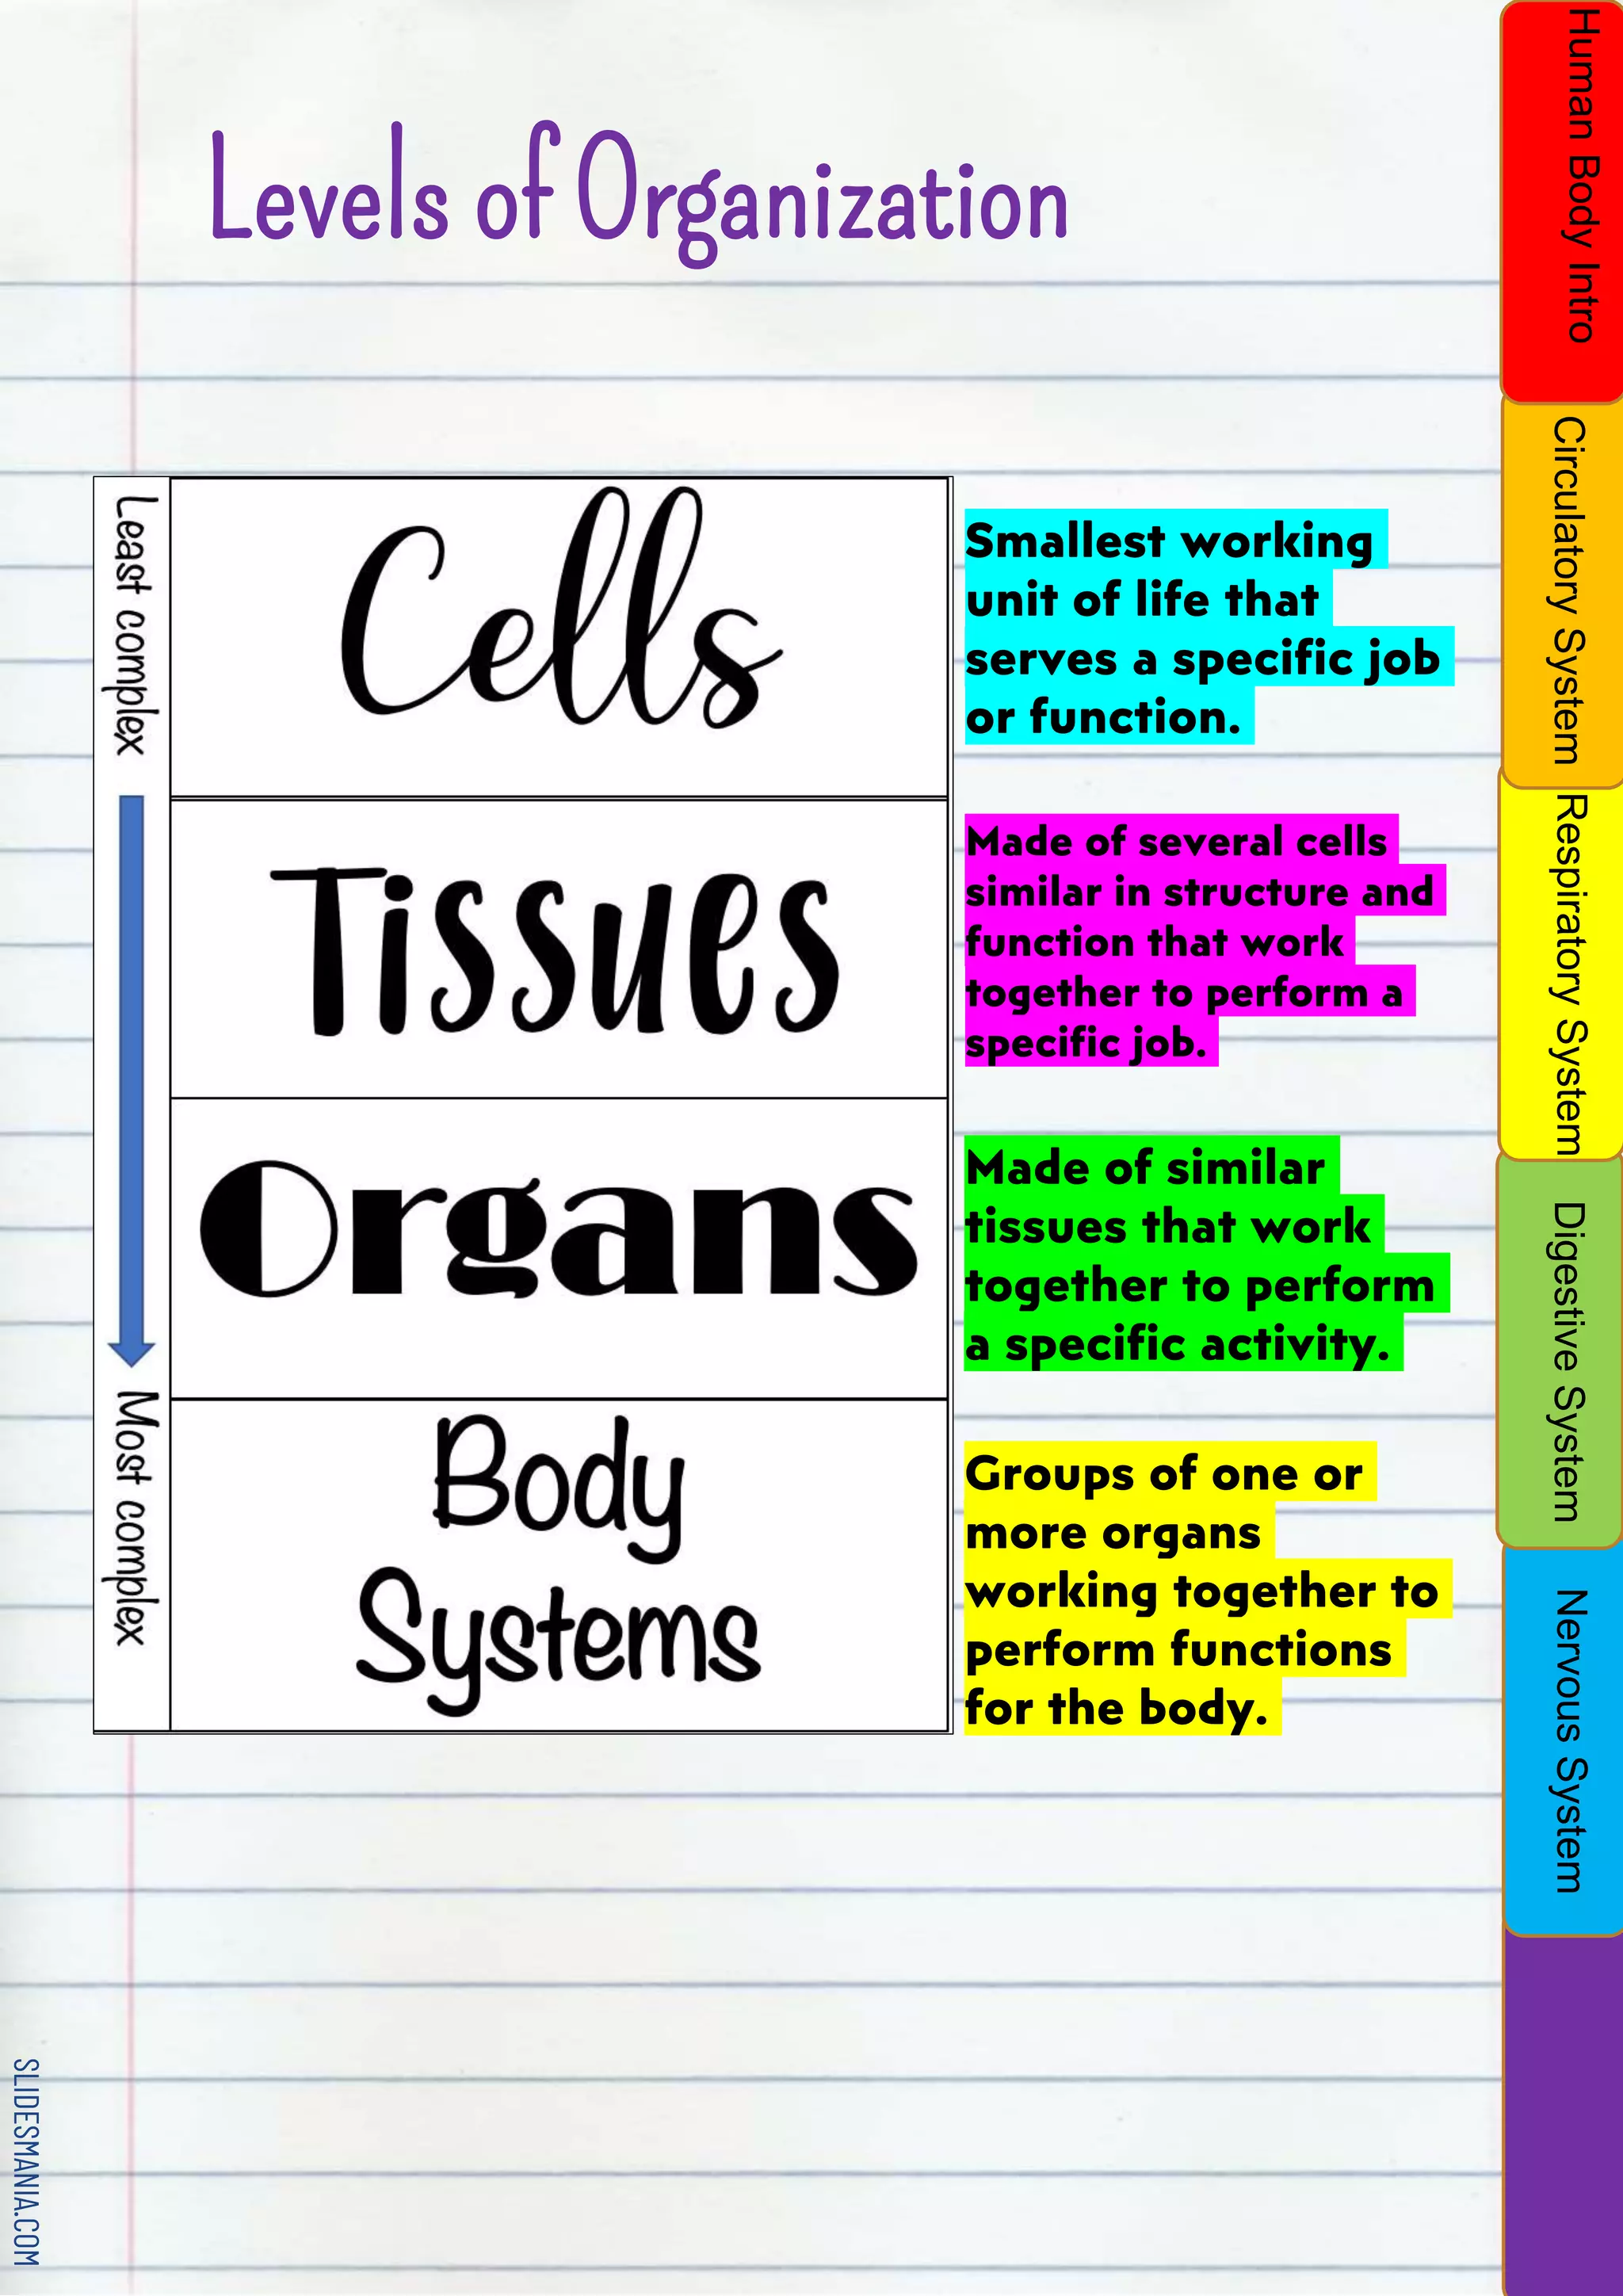 Levels of Organization
Least complex
Most complex
Cells
Smallest working
unit of life that
serves a specific job
or function.
Tissues
Made of several cells
similar in structure and
function that work
together to perform a
specific job.
Organs
Made of similar
tissues that work
together to perform
a specific activity.
Body
Systems
Groups of one or
more organs
working together to
perform functions
for the body.
Human Body Intro
Circulatory System
Respiratory System
Digestive System
Nervous System
SLIDESMANIA.COM